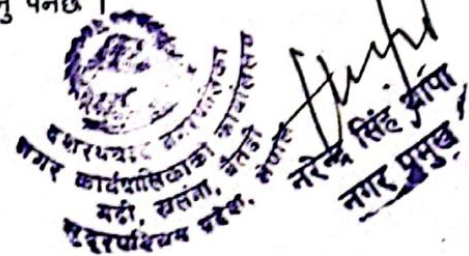 नु पर्नेछ ।
दशरथचन्द नगरपालिका
नगर कार्यपालिकाको कार्यालय
गढी, खलंगा, बैतडी
सुदूरपश्चिम प्रदेश, नेपाल
नरेन्द्र सिंह थापा
नगर प्रमुख